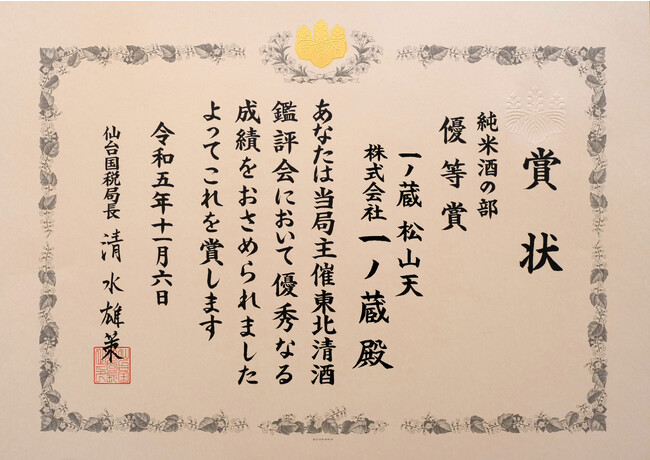 賞状
純米酒の部
優等賞
一ノ蔵 松山天
株式会社 一ノ蔵殿
あなたは当局主催東北清酒
鑑評会において優秀なる
成績をおさめられました
よってこれを賞します
令和五年十一月六日
仙台国税局長 清水雄策